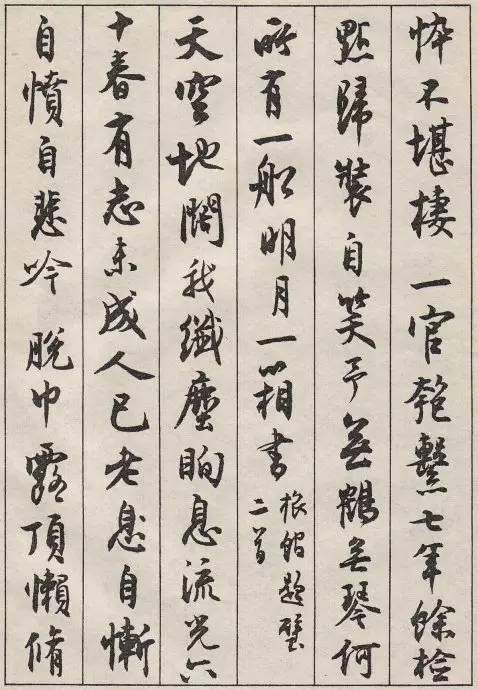 悴不堪棲 一官匏繫七年餘檢
點歸裝自笑予無鶴無琴何
所有一船明月一箱書 旅館題壁
二首
天空地闊我纖塵眴息流光六
十春有志未成人已老息自慚
自憤自悲吟 脫巾露頂懶脩